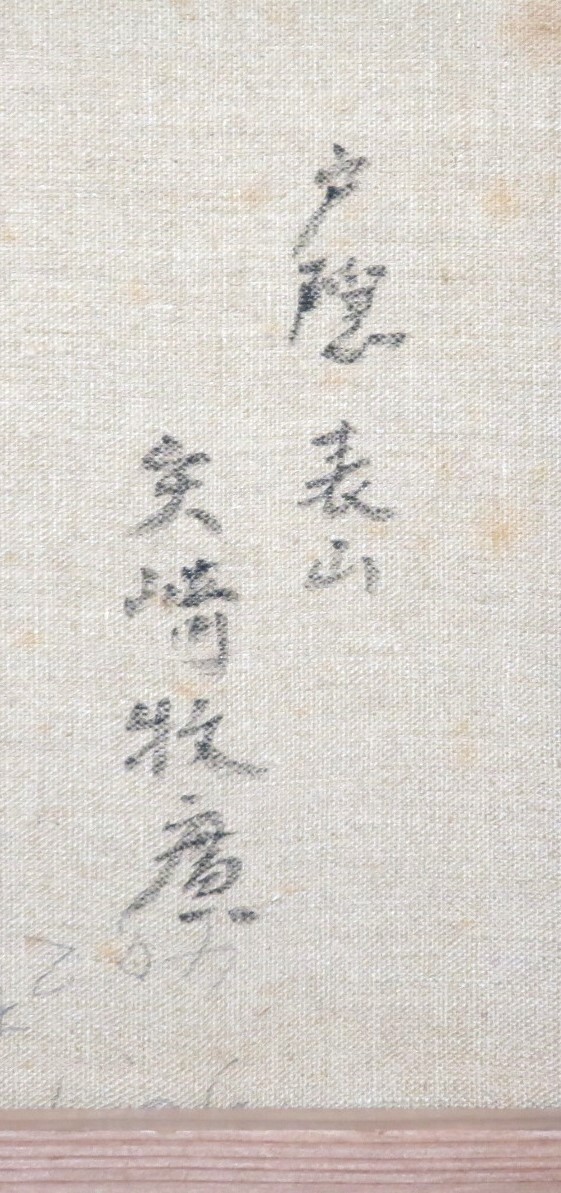 戸隠 表山
矢崎牧廣